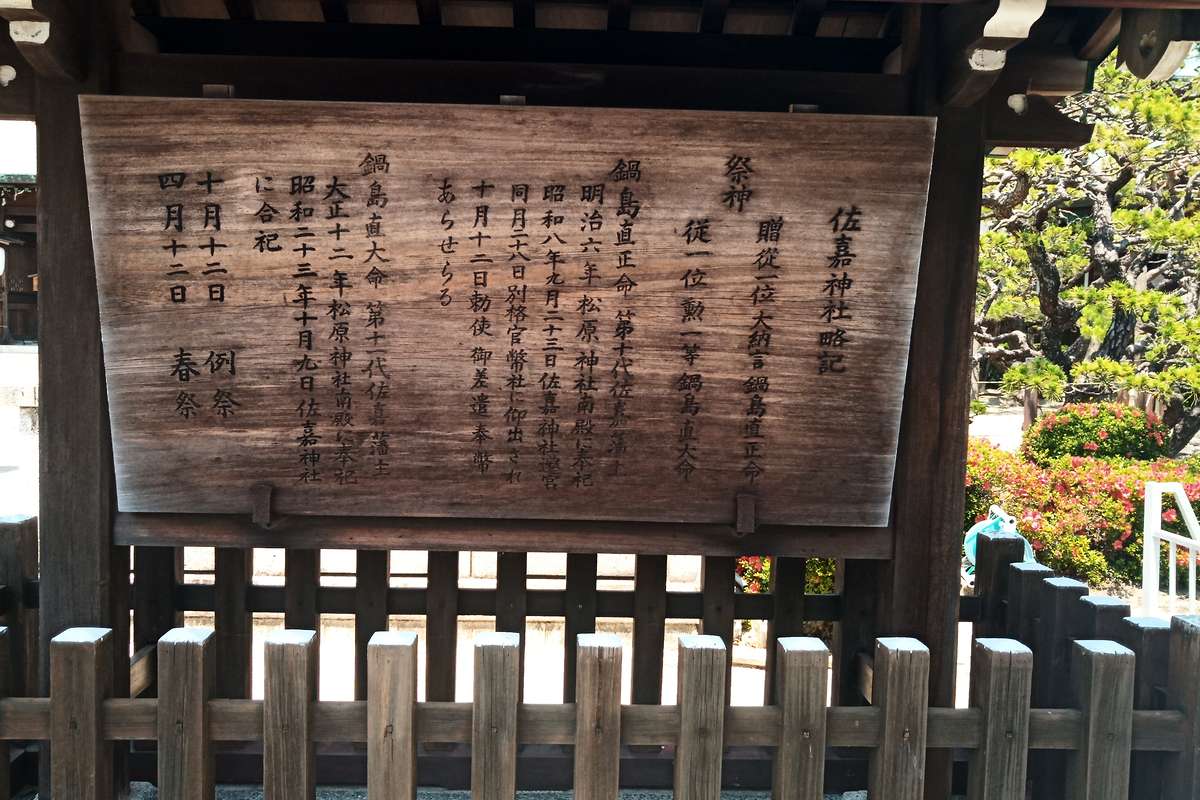 佐嘉神社略記
祭神
贈從一位大納言鍋島直正命
従一位勲一等鍋島直大命
鍋島直正命 第十代佐嘉藩主
明治六年松原神社南殿に奉祀
昭和八年九月二十三日佐嘉神社遷宮
同月二八日別格官幣社に仰出され
十月十二日勅使御差遣奉幣
あらせらる
鍋島直大命 第十一代佐嘉藩主
大正十二年松原神社南殿に奉祀
昭和二十三年十月九日佐嘉神社
に合祀
十月十二日 例祭
四月十二日 春祭